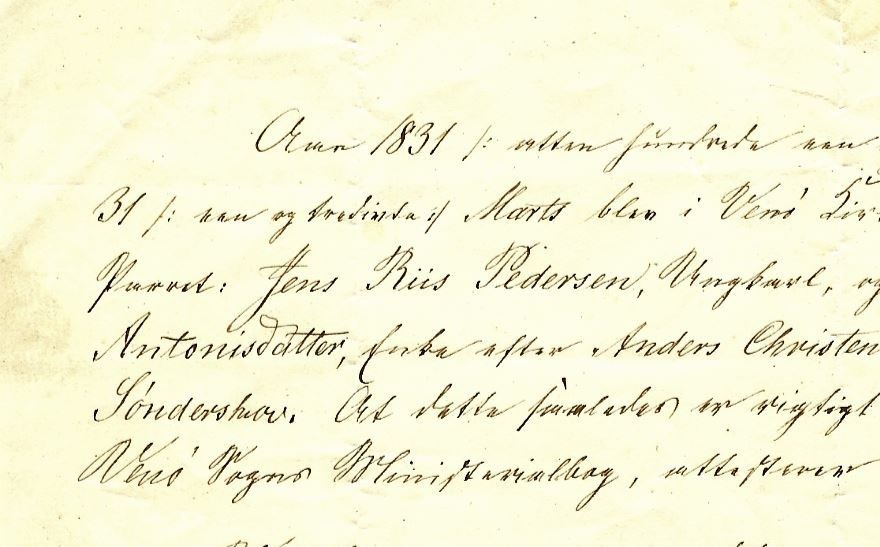 Aar 1831 /: atten hundrede een
31 /: een og tredivte :/ Marts blev i Venö Kir
Parret: Jens Riis Pedersen, Ungkarl, og
Antonisdatter, Enke efter Anders Christen
Sönderskov. At dette saaledes er rigtigt
Venö Sogns Ministerialbog, attesterer